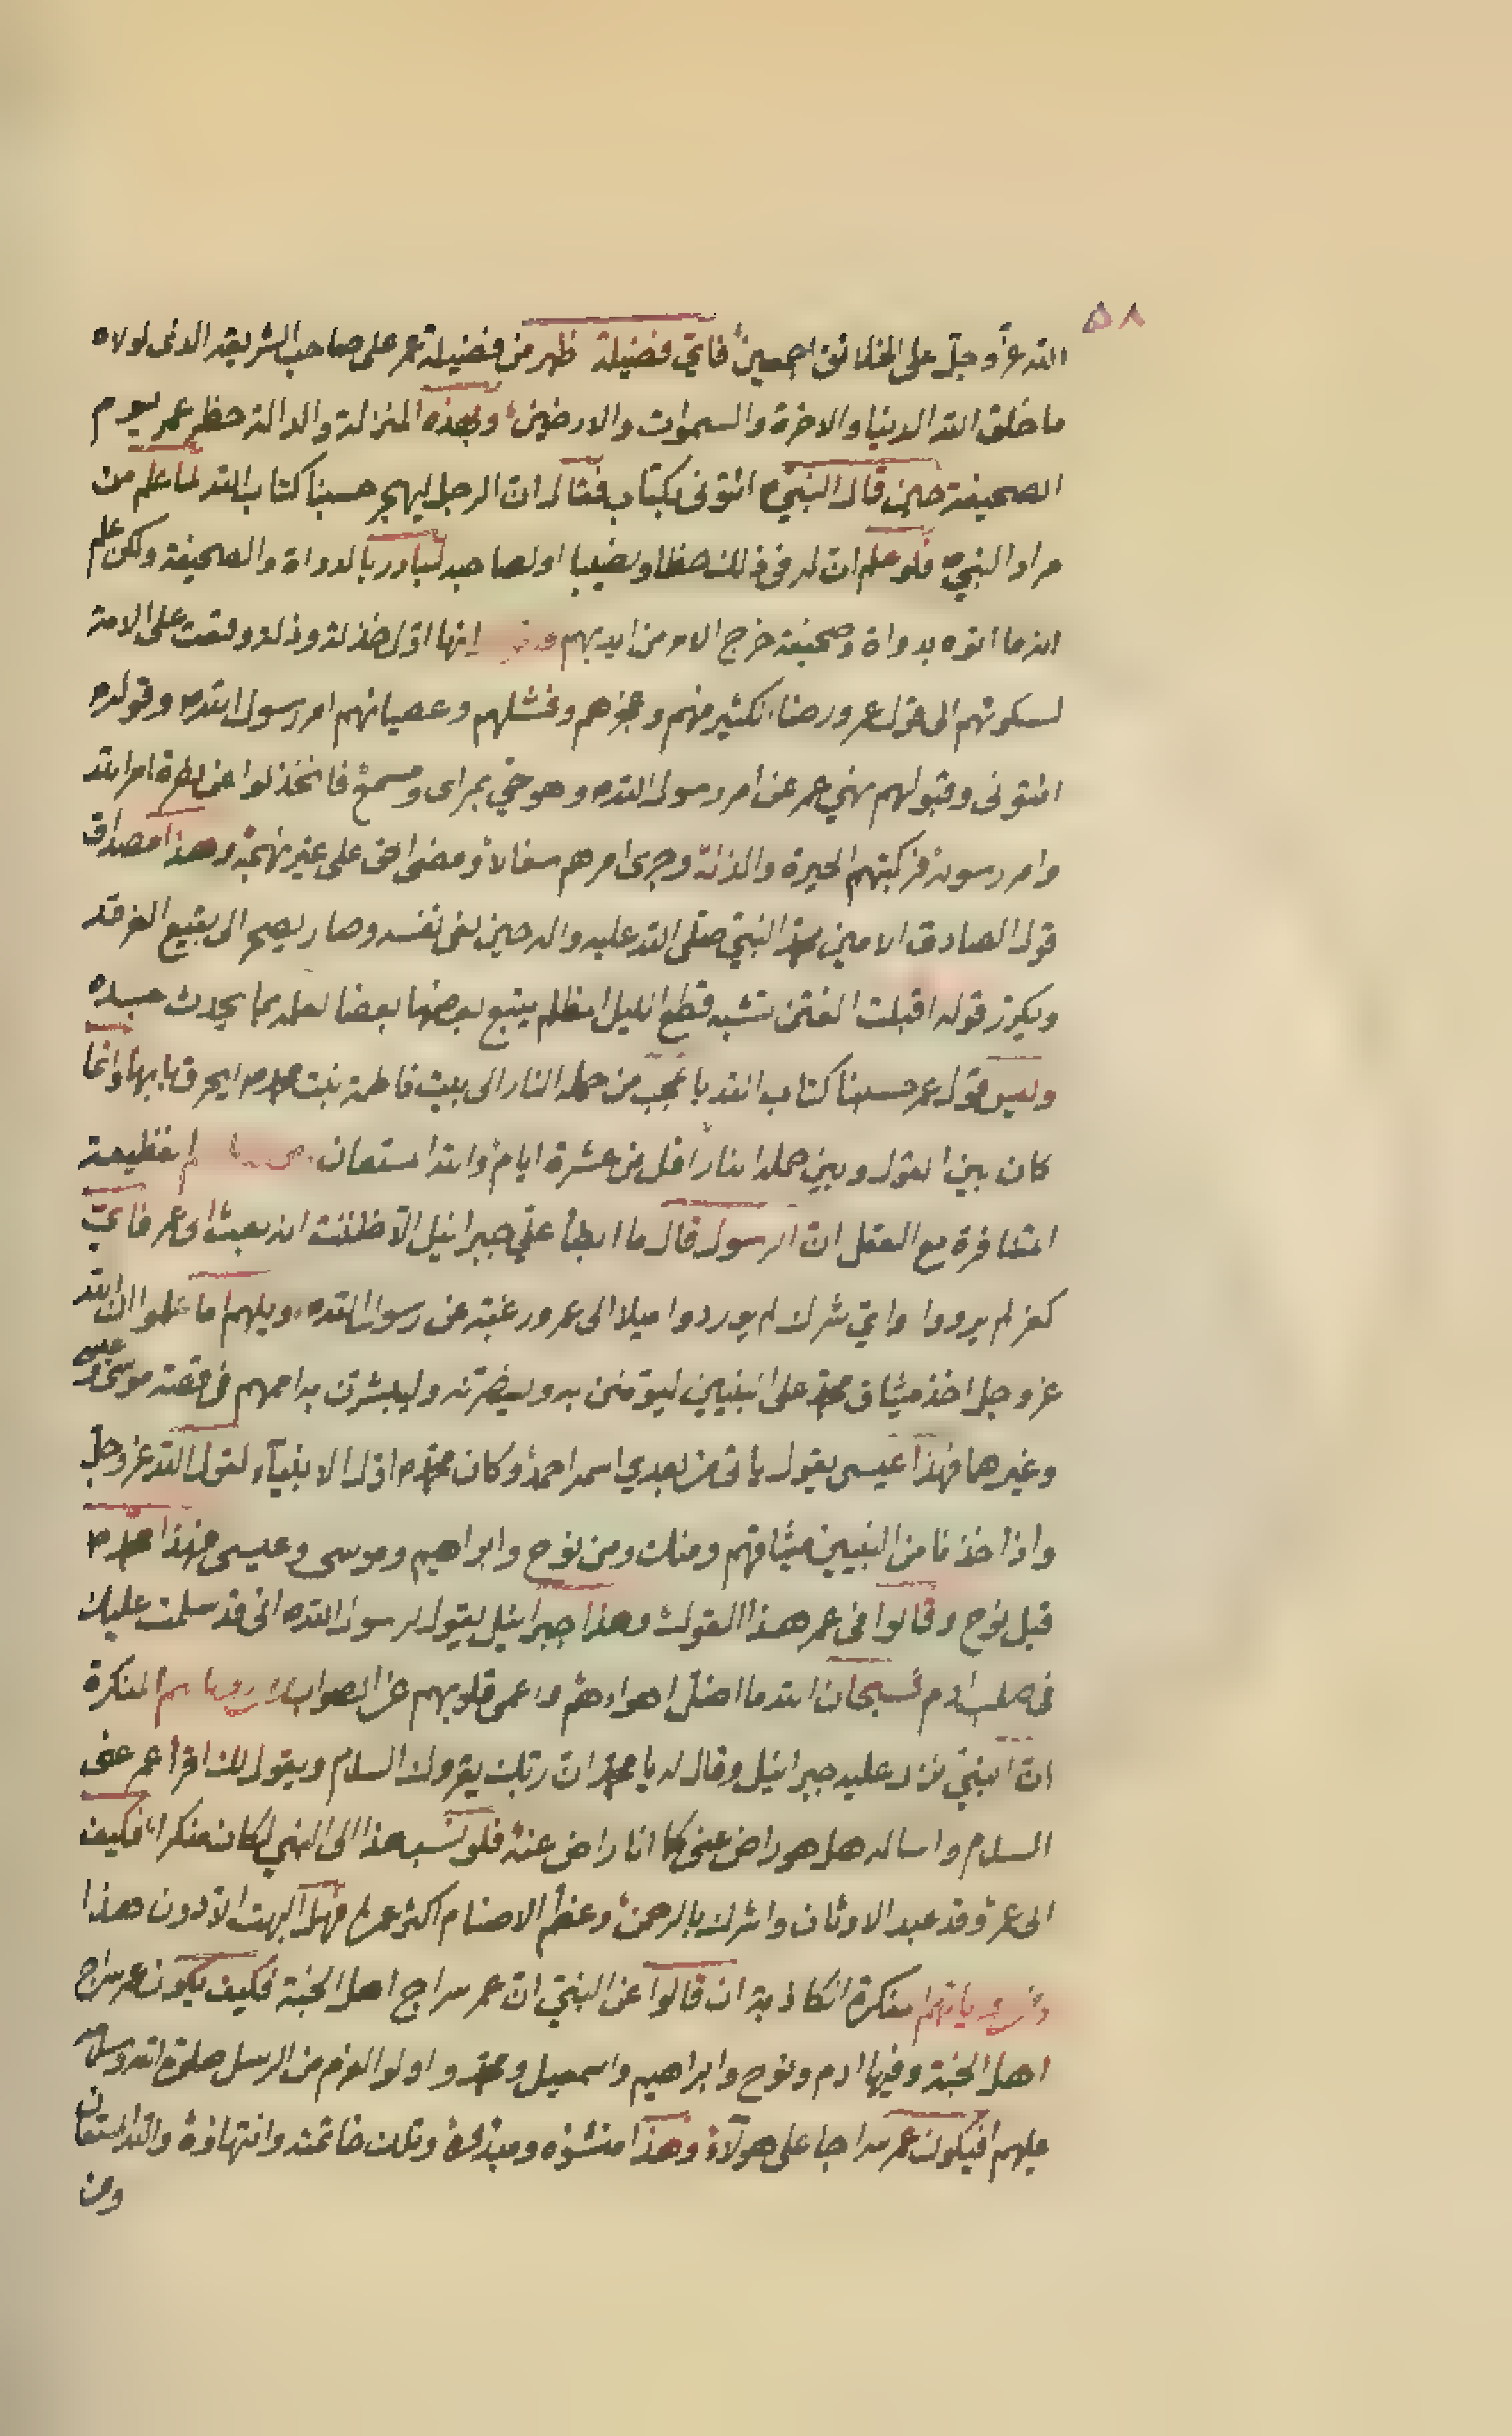 ٥٨
الله عز وجل على الخلائق اجمعين فاي فضيلة ظهر من فضيلة عمر على صاحب الشريعة الذى لولاه
ما خلق الله الدنيا والاخرة والسموات والارضين وبهذه المنزلة والدالة حظر عمر يوم
الصحيفة حين قال النبي ائتونى بكتاب فقال ان الرجل ليهجر حسبنا كتاب الله لما علم من
مراد النبي فلو علم ان له فى ذلك حظا ونصيبا او لصاحبه لبادر بالدواة والصحيفة ولكن علم
انه ما اتوه بدواة وصحيفة خرج الامر من ايديهم انها اول خذلة وذلة وقعت على الامة
لسكوتهم الى قول عمر ورضاء كثير منهم وعجزهم وفشلهم وعصيانهم امر رسول الله وقوله
ائتونى وقبولهم نهي عمر عن امر رسول الله وهو حي بمراى ومسمع فانخذلوا عن نصرة امر الله
وامر رسوله فركبتهم الحيرة والذلة وجرى امرهم سفالا ومضى الحق على غير نهجه وهذا مصداق
قول الصادق الامين محمد النبي صلى الله عليه واله حين نعى نفسه وصار يصحر الى بقيع الغرقد
ويكرر قوله اقبلت الفتن تشبه قطع الليل المظلم يتبع بعضها بعضا لعلمه بما يحدث
وليس قول عمر حسبنا كتاب الله باعجب من حمله النار الى بيت فاطمة بنت محمد ليحرق بابها وانما
كان بين القول وبين حمله النار اقل من عشرة ايام والله المستعان العظيمة
المتنافرة مع العقل ان الرسول قال ما ابطأ علي جبرائيل الا ظننت انه بعث الى عمر فاي
كفر لم يرووا واي شرك لم يوردوا ميلا الى عمر ورغبة عن رسول الله ويلهم اما علموا ان الله
عز وجل اخذ ميثاق محمد على النبيين ليؤمنن به ولينصرنه وليبشرن به اممهم فى قصة موسى وعيسى
وغيرهما فهذا عيسى يقول يأتى من بعدي اسمه احمد وكان محمد اول الانبياء لقول الله عز وجل
واذ اخذنا من النبيين ميثاقهم ومنك ومن نوح وابراهيم وموسى وعيسى فهذا محمد
قبل نوح وقالوا فى عمر هذا القول وهذا جبرائيل يقول لرسول الله انى قد سلمت عليك
فى صلب ادم فسبحان الله ما اضل اهواءهم واعمى قلوبهم عن الصواب المنكرة
ان النبي نزل عليه جبرائيل وقال له يا محمد ان ربك يقرؤك السلام ويقول لك اقرأ عمر عنى
السلام واساله هل هو راض عنى كما انا راض عنه فلو نسب هذا الى النبي لكان منكرا فكيف
الى عمر وقد عبد الاوثان واشرك بالرحمن وعظم الاصنام اكثر عمره فهل البهت الا دون هذا
المنكرة الكاذبة ان قالوا عن النبي ان عمر سراج اهل الجنة فكيف يكون عمر سراج
اهل الجنة وفيها ادم ونوح وابراهيم واسمعيل ومحمد واولو العزم من الرسل صلوة الله وسلامه
عليهم افيكون عمر سراجا على هولاء وهذا منشؤه ومبدؤه وتلك خاتمته وانتهاؤه والله المستعان
ومن